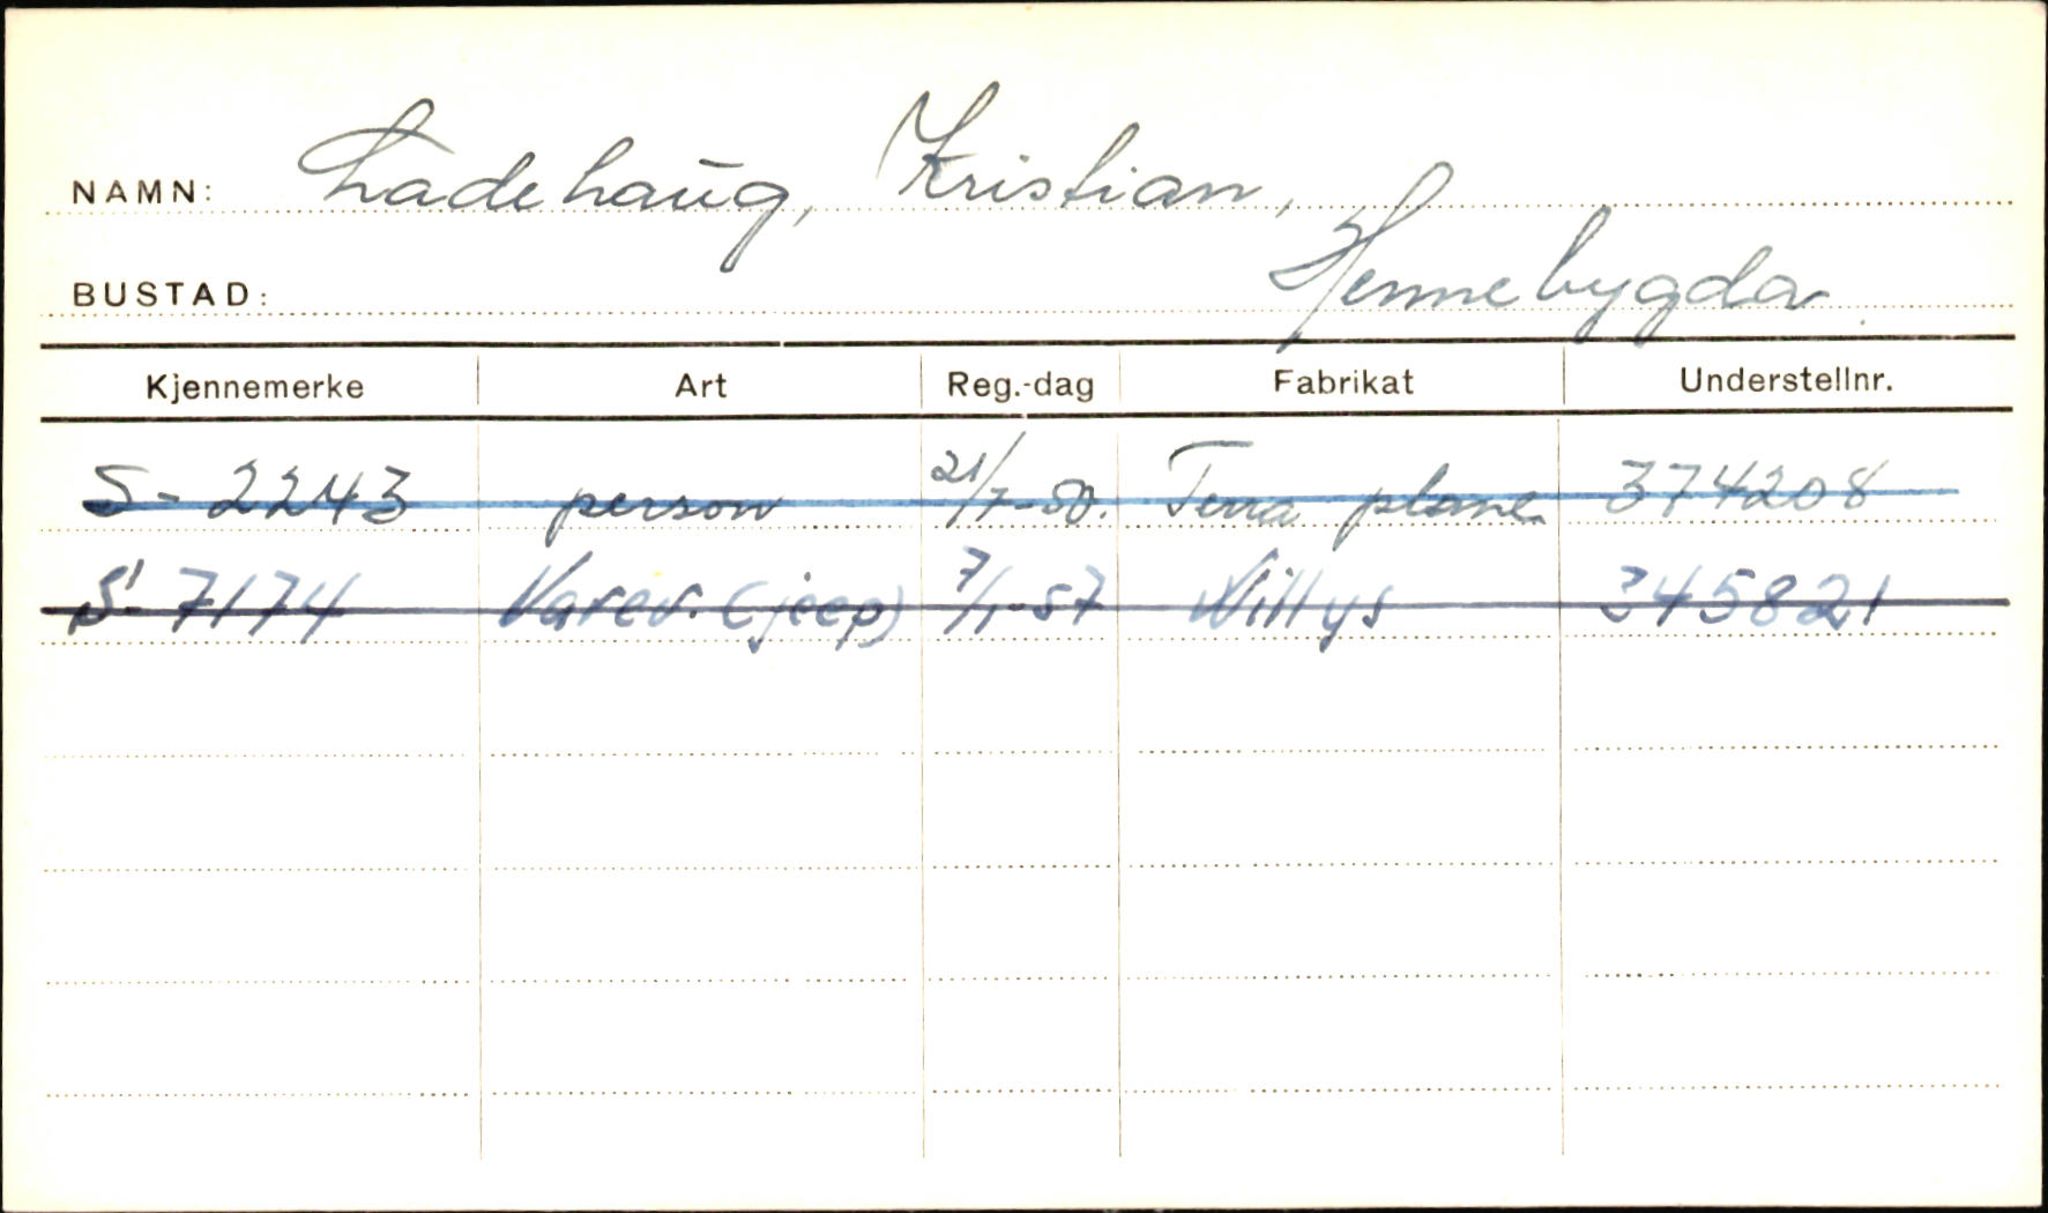 NAMN: Ladehaug, Kristian,
BUSTAD: Hennebygda.
Kjennemerke Art Reg.-dag Fabrikat Understellnr.
S- 2243 person 21/7-50. Terra plane 374208
S- 7174 Varev. (jeep) 7/1-57 Willys 345821